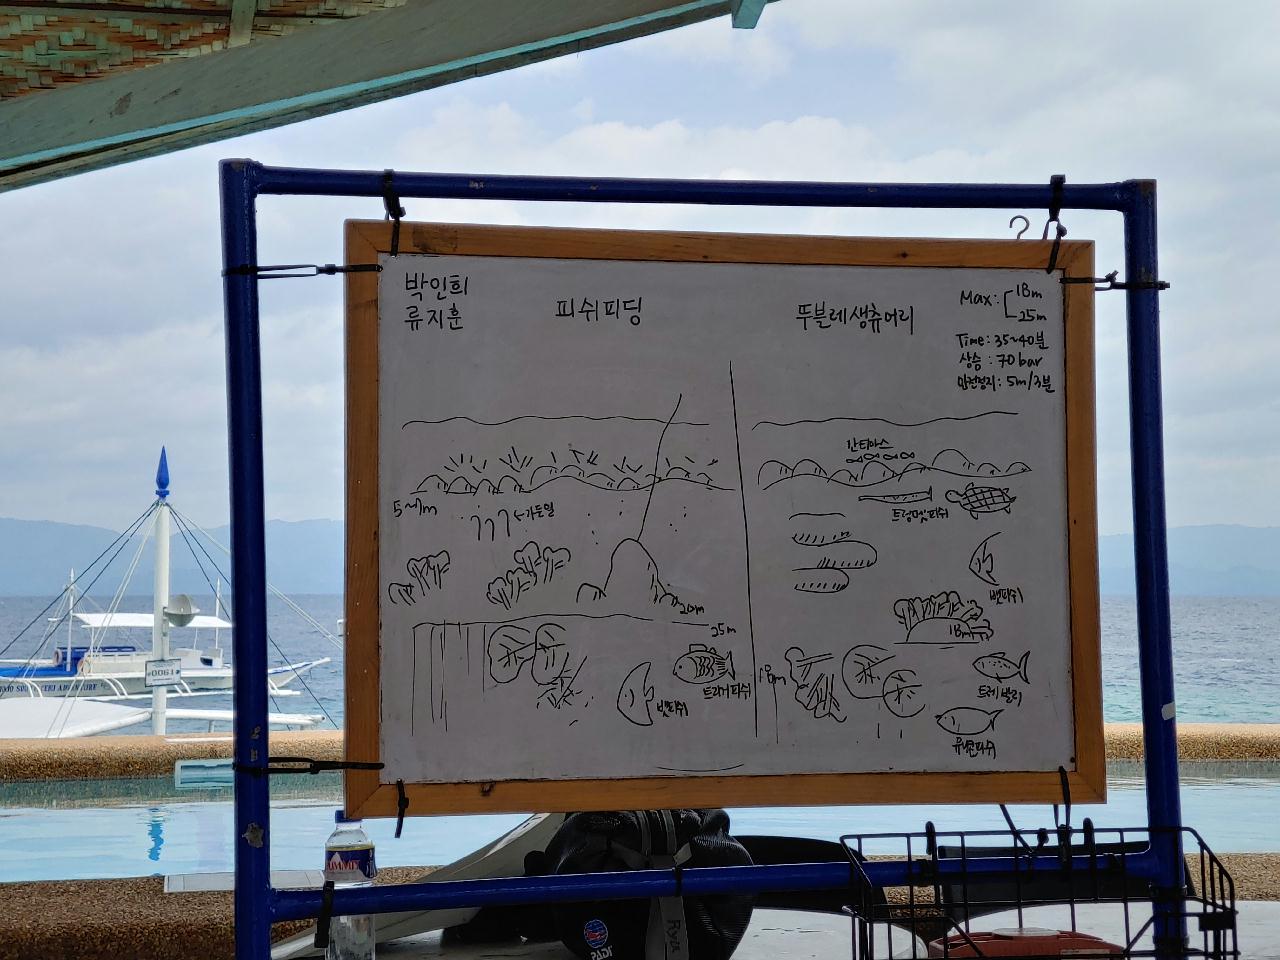 박인희
류지훈
피쉬피딩
뚜블레생츄어리
Max: 18m
25m
Time: 35~40분
상승 : 70bar
안전정지: 5m/3분
5~7m
←가든일
20m
25m
트리거피쉬
뱃피쉬
안티아스
트럼펫피쉬
뱃피쉬
18m
18m
트레벨리
유니콘피쉬
#0061
SUMMIT
Ryu